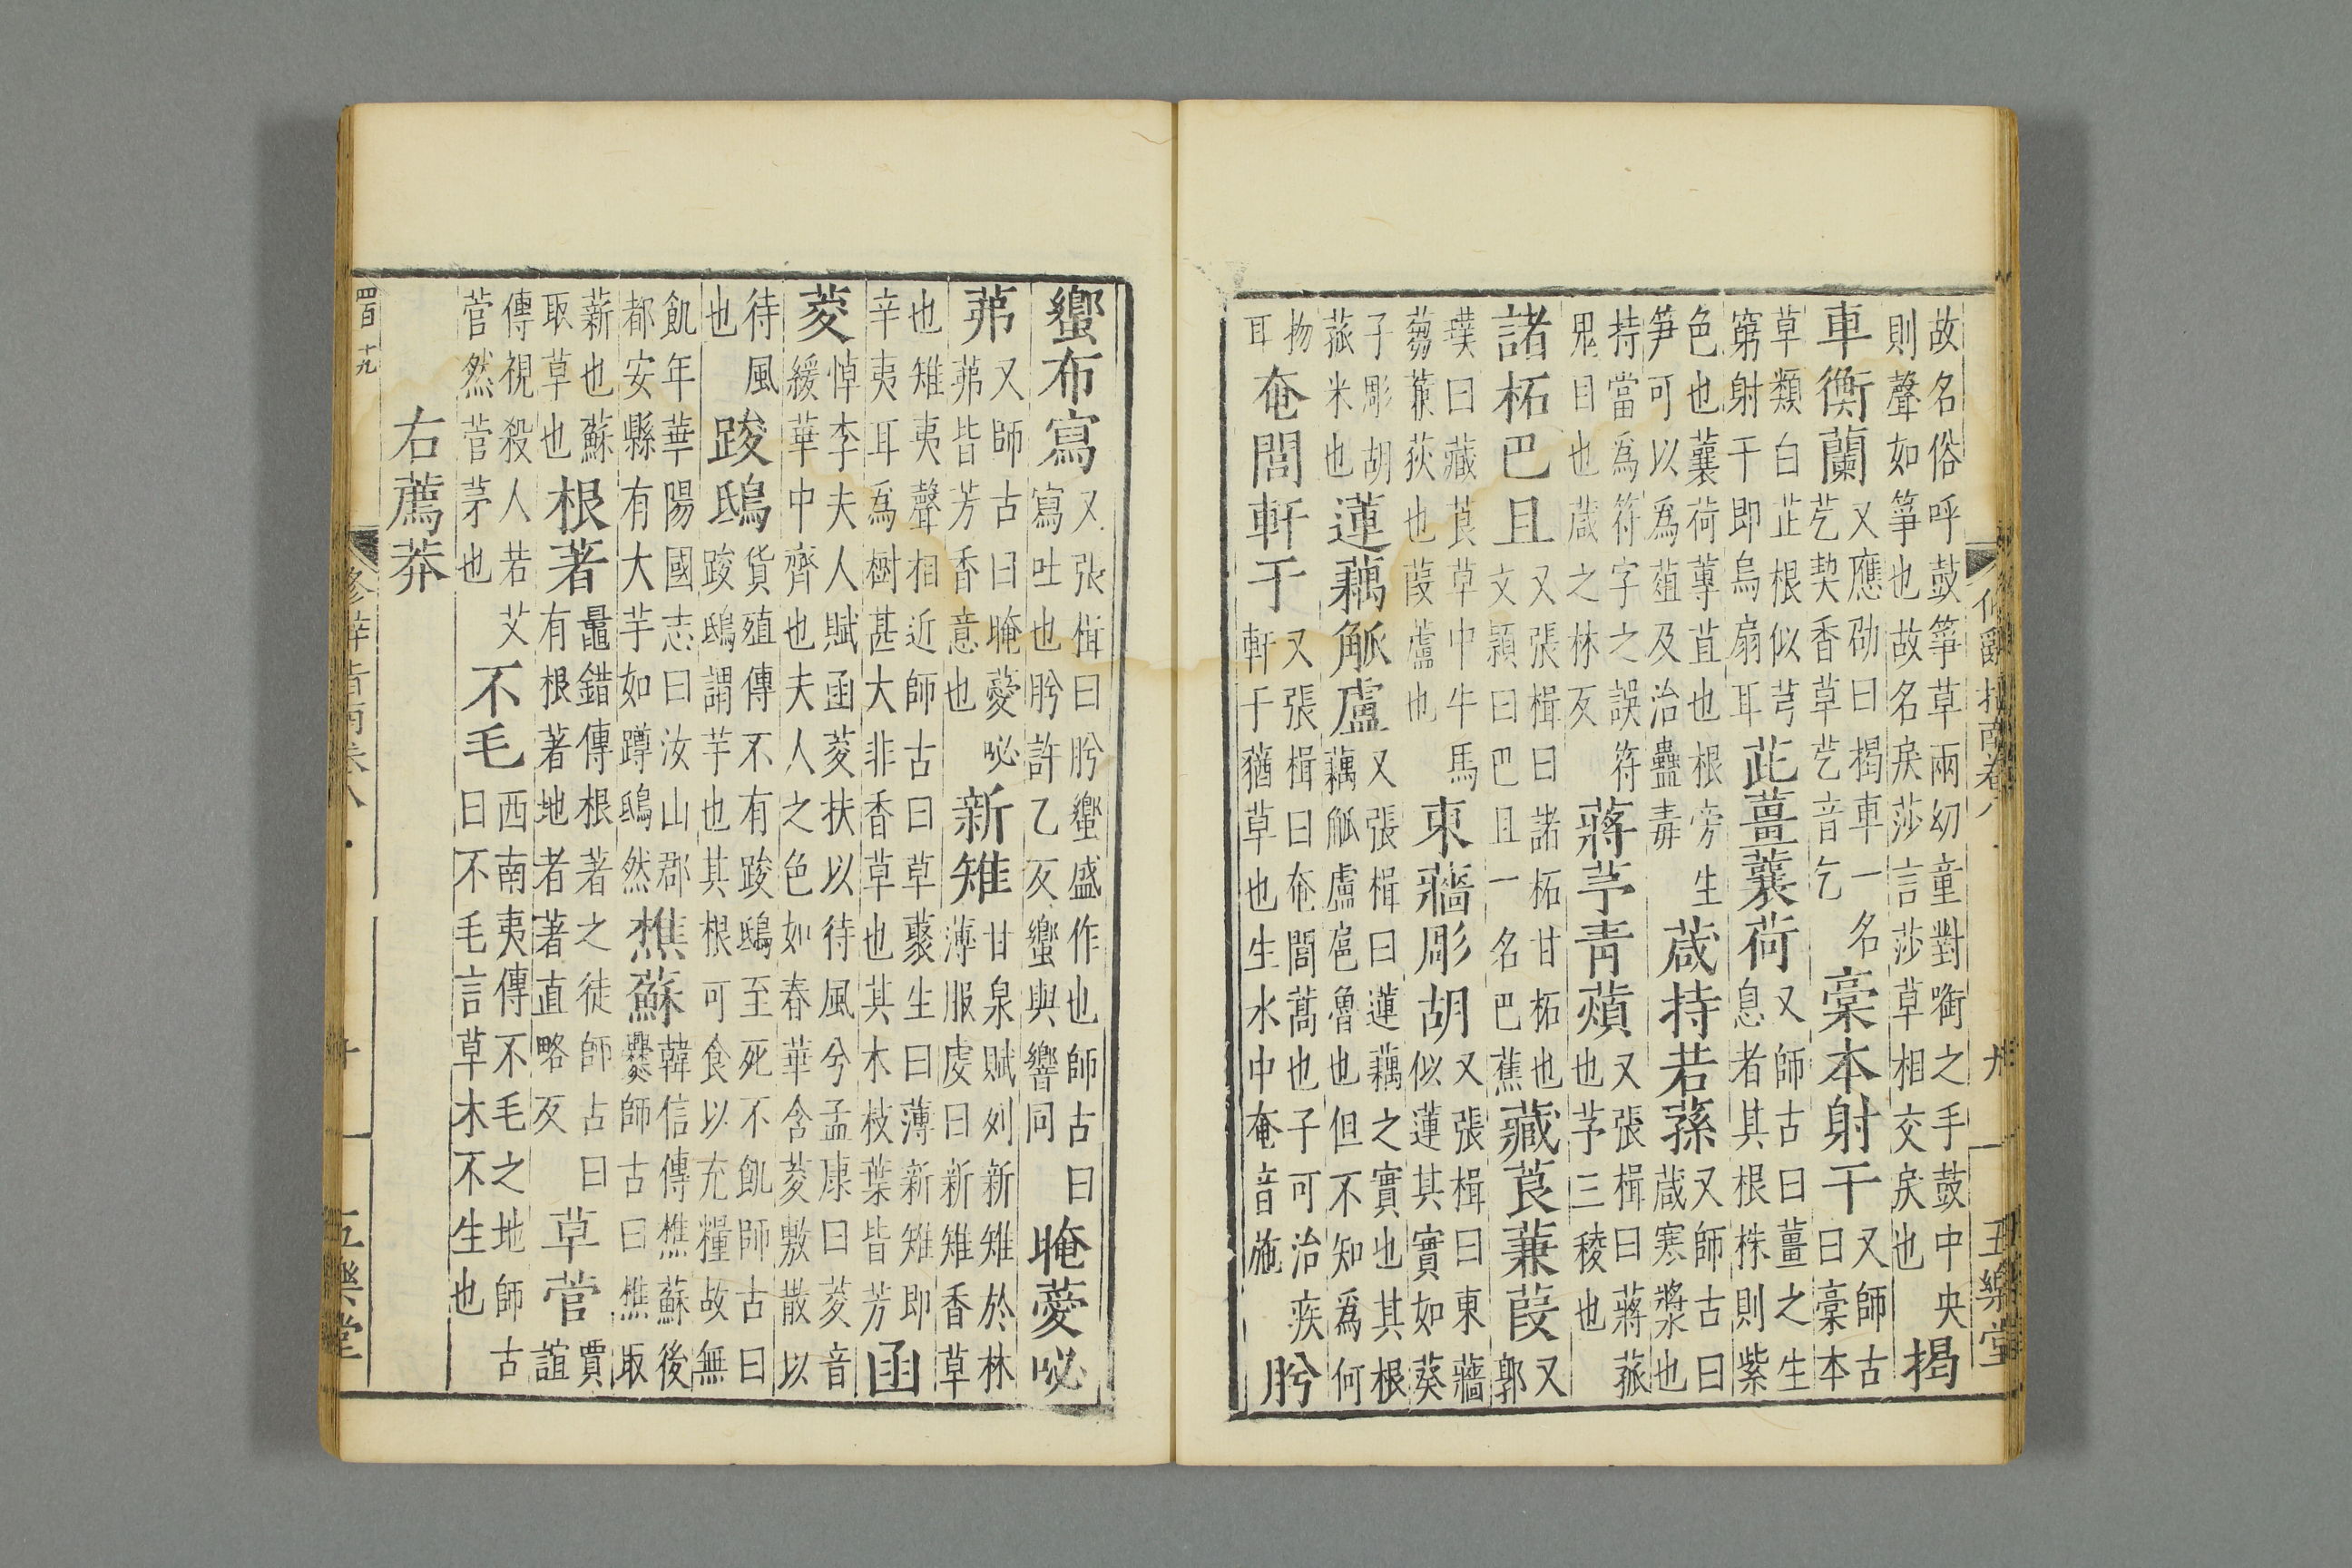 修辭指南卷八 九 五樂堂
故名俗呼鼓箏草兩幼童對銜之手鼓中央則聲如箏也故名戾莎言莎草相交戾也揭
車衡蘭又應劭曰揭車一名艺契香草艺音乞槀本射干又師古曰槀本
草類白芷根似芎窮射干即烏扇耳茈薑蘘荷又師古曰薑之生息者其根株則紫
色也蘘荷蓴苴也根旁生笋可以爲葅及治蠱毒葴持若蓀又師古曰葴寒漿也
持當爲符字之誤符鬼目也葴之林反蔣芧青薠又張楫曰蔣菰也芧三稜也
諸柘巴且又張楫曰諸柘甘柘也文頴曰巴且一名巴蕉藏莨蒹葭又郭
璞曰藏莨草中牛馬蒭蒹荻也葭蘆也東蘠彫胡又張楫曰東蘠似蓮其實如葵
子彫胡菰米也蓮藕觚盧又張楫曰蓮藕之實也其根藕觚盧扈魯也但不知爲何
物耳奄閭軒于又張楫曰奄閭蒿也子可治疾軒于猶草也生水中奄音施肸
蠁布寫又張楫曰肸蠁盛作也師古曰寫吐也肸許乙反蠁與響同晻薆咇
茀又師古曰晻薆咇茀皆芳香意也新雉甘泉賦列新雉於林薄服虔曰新雉香草
也雉夷聲相近師古曰草藂生曰薄新雉即辛夷耳爲樹甚大非香草也其木枝葉皆芳函
荾悼李夫人賦函荾扶以待風兮孟康曰荾音綏華中齊也夫人之色如春華含荾敷散以
待風也踆鴟貨殖傳不有踆鴟至死不飢師古曰踆鴟謂芋也其根可食以充糧故無
飢年華陽國志曰汶山郡都安縣有大芋如蹲鴟然樵蘇韓信傳樵蘇後爨師古曰樵取
薪也蘇取草也根著鼂錯傳根著之徒師古曰有根著地者著直略反草菅賈誼
傳視殺人若艾菅然菅茅也不毛西南夷傳不毛之地師古曰不毛言草木不生也
右薦莽
四百十九 修辭指南卷八 十 五樂堂